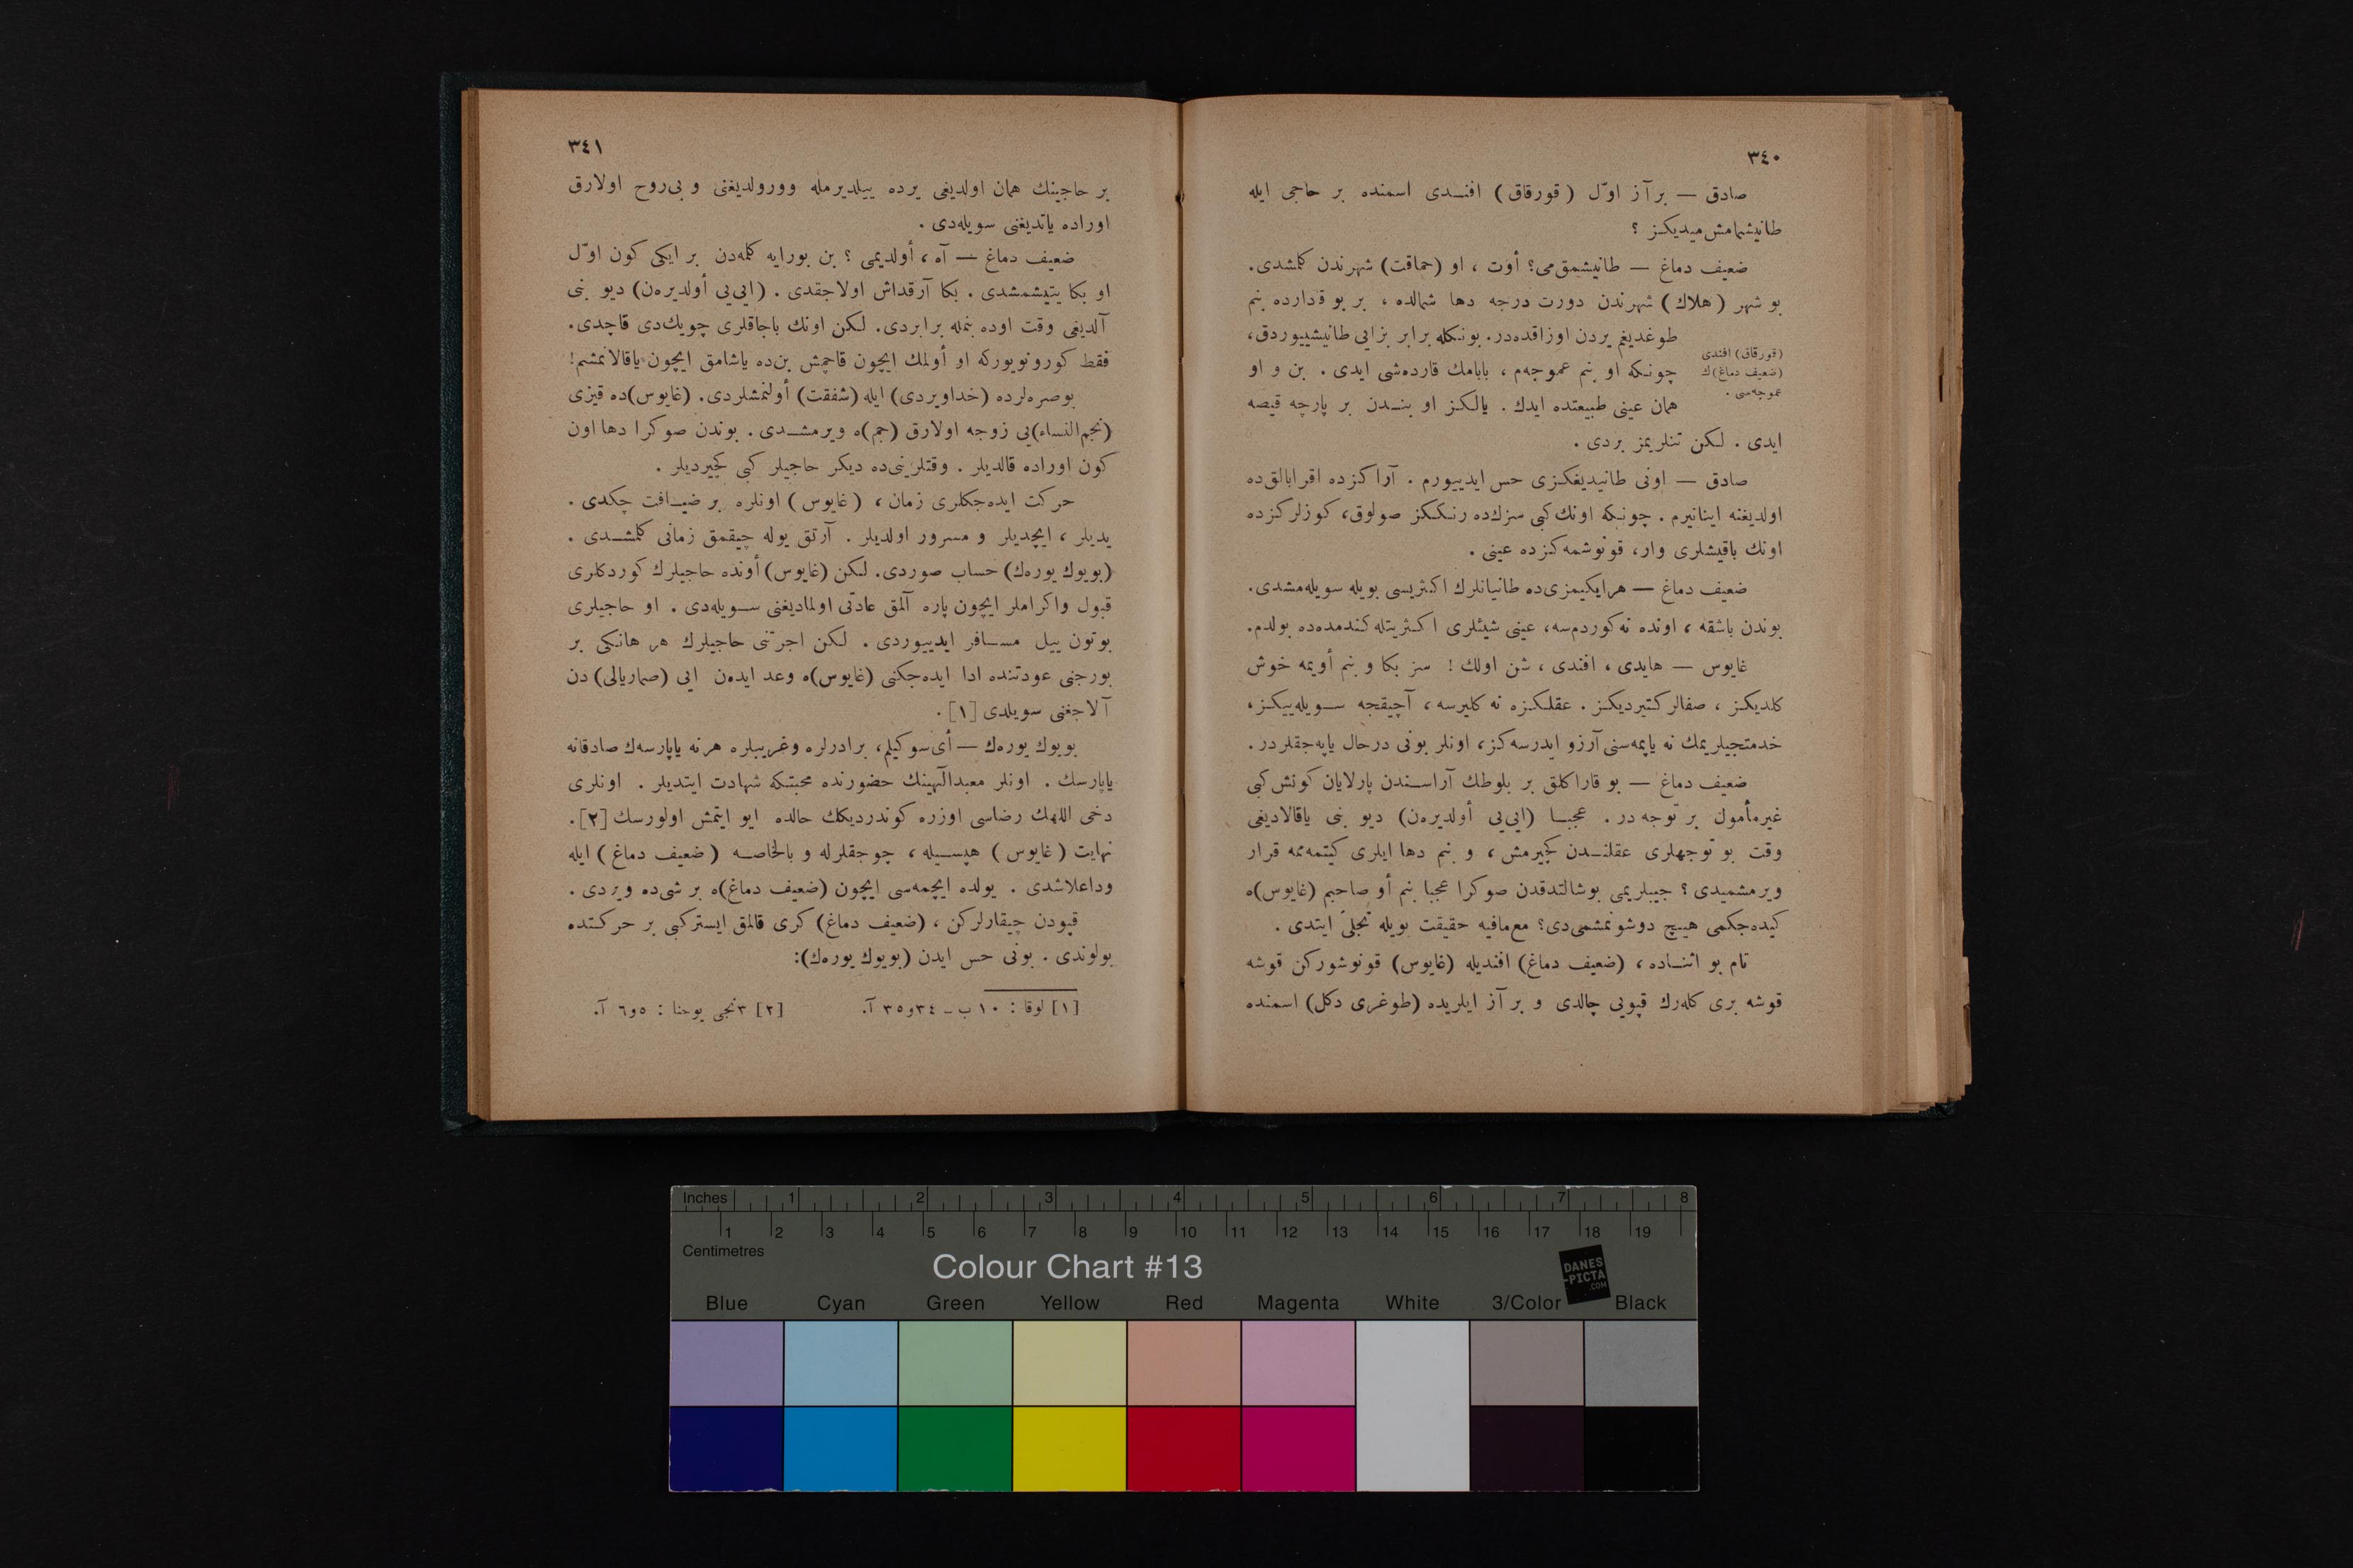 ٣٤٠
صادق — بر آز اوّل ( قورقاق ) افندى اسمنده بر حاجى ايله
طانيشمامش‌ميديكز ؟
ضعيف دماغ — طانيشمق‌مى؟ أوت ، او (حماقت) شهرندن كلمشدى.
بو شهر ( هلاك ) شهرندن دورت درجه دها شمالده ، بر بو قدارده بنم
طوغديغم يردن اوزاقده‌در. بونكله برابر بزايى طانيشييوردق،
(قورقاق) افندى
(ضعيف دماغ)ك
عموجه‌سى .
چونكه او بنم عموجه‌م ، بابامك قارده‌شى ايدى . بن و او
همان عينى طبيعتده ايدك . يالكز او بندن بر پارچه قيصه
ايدى . لكن تنلريمز بردى .
صادق — اونى طانيديغكزى حس ايدييورم . آراكزده اقرابالق‌ده
اولديغنه اينانيرم . چونكه اونك‌كبى سزك‌ده رنككز صولوق، كوزلركزده
اونك باقيشلرى وار، قونوشمه‌كزده عينى .
ضعيف دماغ — هرايكيمزى‌ده طانيانلرك اكثريسى بويله سويله‌مشدى.
بوندن باشقه ، اونده نه‌كوردم‌سه، عينى شيئلرى اكثريتله‌كندمده‌ده بولدم.
غايوس — هايدى ، افندى ، شن اولك ! سز بكا و بنم أويمه خوش
كلديكز ، صفالركتيرديكز . عقلكزه نه كليرسه ، آچيقجه سويله‌ييكز،
خدمتجيلريمك نه ياپمه‌سنى آرزو ايدرسه‌كز، اونلر بونى درحال ياپه‌جقلردر.
ضعيف دماغ — بو قاراكلق بر بلوطك آراسندن پارلايان كونش‌كبى
غيرمأمول بر توجه‌در . عجبا (ايى‌يى أولديره‌ن) ديو بنى ياقالاديغى
وقت بو توجهلرى عقلندن كچيرمش ، و بنم دها ايلرى كيتمه‌ممه قرار
ويرمشميدى ؟ جيبلريمى بوشالتدقدن صوكرا عجبا بنم أو صاحبم (غايوس)ه
كيده‌جكمى هيچ دوشونمشمى‌دى؟ مع‌مافيه حقيقت بويله تجلىّ ايتدى .
تام بو اثناده ، (ضعيف دماغ) افنديله (غايوس) قونوشوركن قوشه
قوشه برى كله‌رك قپويى چالدى و بر آز ايلريده (طوغرى دكل) اسمنده
٣٤١
بر حاجينك همان اولديغى يرده ييلديرمله وورولديغنى و بى‌روح اولارق
اوراده ياتديغنى سويله‌دى .
ضعيف دماغ — آه ، أولديمى ؟ بن بورايه كلمه‌دن بر ايكى كون اوّل
او بكا يتيشمشدى . بكا آرقداش اولاجقدى . (ايى‌يى أولديره‌ن) ديو بنى
آلديغى وقت اوده بنمله برابردى. لكن اونك باجاقلرى چويك‌دى قاچدى.
فقط كورونويوركه او أولمك ايچون قاچمش بن‌ده ياشامق ايچون ياقالانمشم!
بوصره‌لرده (خداويردى) ايله (شفقت) أولنمشلردى. (غايوس)ده قيزى
(نجم‌النساء)يى زوجه اولارق (جم)ه ويرمشدى . بوندن صوكرا دها اون
كون اوراده قالديلر . وقتلرينى‌ده ديكر حاجيلر كبى كچيرديلر .
حركت ايده‌جكلرى زمان ، ( غايوس ) اونلره بر ضيافت چكدى .
يديلر ، ايچديلر و مسرور اولديلر . آرتق يوله چيقمق زمانى كلمشدى .
(بويوك يوره‌ك) حساب صوردى. لكن (غايوس) أونده حاجيلرك كوردكلرى
قبول واكراملر ايچون پاره آلمق عادتى اولماديغنى سويله‌دى . او حاجيلرى
بوتون ييل مسافر ايدييوردى . لكن اجرتنى حاجيلرك هر هانكى بر
بورجنى عودتنده ادا ايده‌جكنى (غايوس)ه وعد ايده‌ن ايى (صماريالى) دن
آلاجغنى سويلدى [١] .
بويوك يوره‌ك — أى‌سوكيلم، برادرلره وغريبلره هرنه ياپارسه‌ك صادقانه
ياپارسك . اونلر معبدالهينك حضورنده محبتكه شهادت ايتديلر . اونلرى
دخى اللهك رضاسى اوزره كوندرديكك حالده ايو ايتمش اولورسك [٢].
نهايت ( غايوس ) هپسيله ، چوجقلرله و بالخاصه ( ضعيف دماغ ) ايله
وداعلاشدى . يولده ايچمه‌سى ايچون (ضعيف دماغ)ه بر شى‌ده ويردى .
قپودن چيقارلركن ، (ضعيف دماغ) كرى قالمق ايستركبى بر حركتده
بولوندى . بونى حس ايدن (بويوك يوره‌ك):
[١] لوقا : ١٠ ب ـ ٣٤و٣٥ آ. [٢] ٣نجى يوحنا : ٥و٦ آ.
Inches 1 2 3 4 5 6 7 8
1 2 3 4 5 6 7 8 9 10 11 12 13 14 15 16 17 18 19
Centimetres
Colour Chart #13
DANES
-PICTA
.COM
Blue Cyan Green Yellow Red Magenta White 3/Color Black